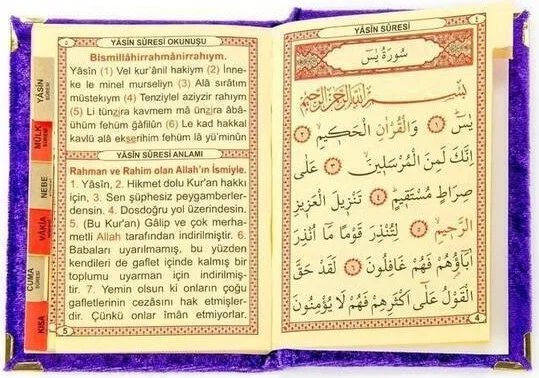 YÂSİN SÛRESİ OKUNUŞU
Bismillâhirrahmânirrahıym.
Yâsîn (1) Vel kur'ânil hakiym (2) İnne-
ke le minel murseliyn (3) Alâ sırâtım
müstekıym (4) Tenziylel aziyzir rahıym
(5) Li tünzira kavmem mâ ünzira âbâ-
ühüm fehüm ğâfilûn (6) Le kad hakkal
kavlü alâ ekserihim fehüm lâ yü'minûn
YÂSİN SÛRESİ ANLAMI
Rahman ve Rahim olan Allah'ın İsmiyle.
1. Yâsîn, 2. Hikmet dolu Kur'an hakkı
için, 3. Sen şüphesiz peygamberler-
densin. 4. Dosdoğru yol üzerindesin.
5. (Bu Kur'an) Gâlip ve çok merha-
metli Allah tarafından indirilmiştir. 6.
Babaları uyarılmamış, bu yüzden
kendileri de gaflet içinde kalmış bir
toplumu uyarman için indirilmiş-
tir. 7. Yemin olsun ki onların çoğu
gafletlerinin cezasını hak etmişler-
dir. Çünkü onlar îmân etmiyorlar.
5
YÂSİN SÛRESİ
MÜLK SÛRESİ
NEBE
VÂKIA
CUMA SÛRESİ
KISA
YÂSİN SÛRESİ
٤
سُورَةُ يٰسٓ
بِسْمِ اللّٰهِ الرَّحْمٰنِ الرَّحِيمِ
يٰسٓ ١ وَالْقُرْاٰنِ الْحَكِيمِ ٢
اِنَّكَ لَمِنَ الْمُرْسَلِينَ ٣ عَلٰى
صِرَاطٍ مُسْتَقِيمٍ ٤ تَنْزِيلَ الْعَزِيزِ
الرَّحِيمِ ٥ لِتُنْذِرَ قَوْمًا مَٓا اُنْذِرَ
اٰبَٓاؤُ۬هُمْ فَهُمْ غَافِلُونَ ٦ لَقَدْ حَقَّ
الْقَوْلُ عَلٰٓى اَكْثَرِهِمْ فَهُمْ لَا يُؤْمِنُونَ
4